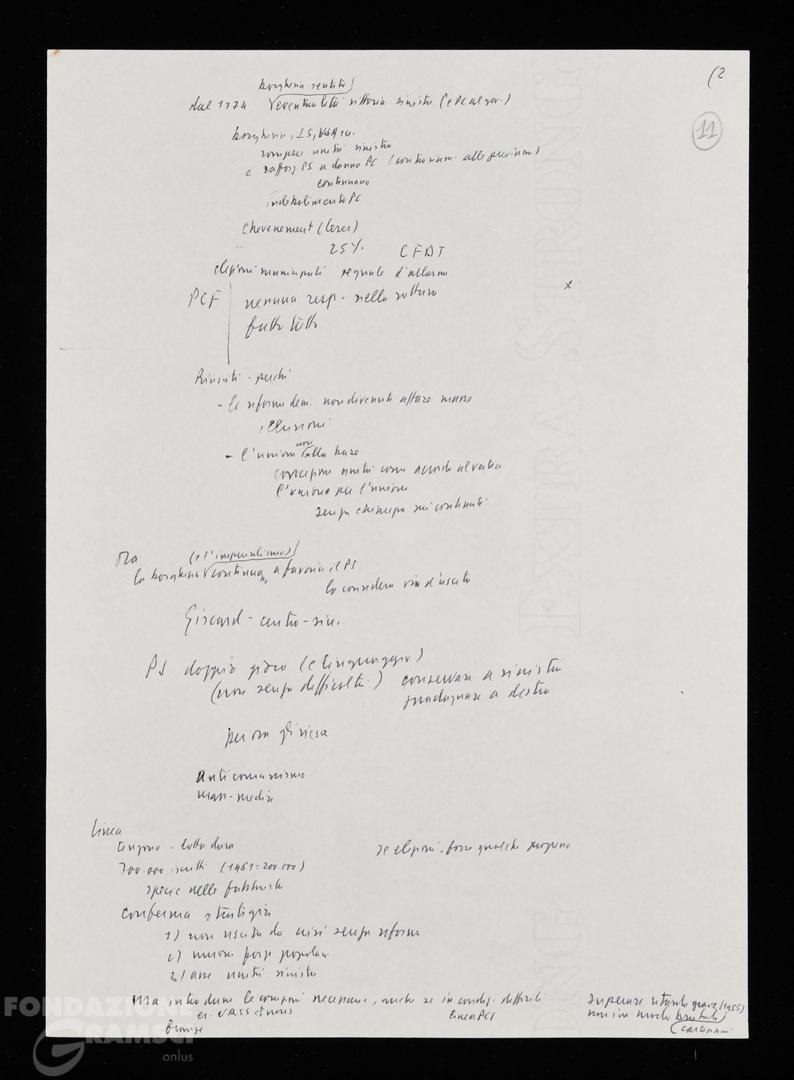 (2
11
borghesia sentito
dal 1974 eventualità vittoria sinistra (e PC al gov.)
borghesia, IS, USA ecc.
rompere unità sinistra
e rafforz. PS a danno PC (contrariam. alle previsioni)
continuano
indebolimento PC
Chevenement (Ceres)
25% CFDT
elezioni municipali segnale d'allarme
PCF nessuna resp. nella rottura
x
fatto tutto
Riusciti - perché
- le riforme dem. non divenute affare masse
illusioni
non
- l'unione alla base
concezione unità come accordo al vertice
l'unione per l'unione
senza chiarezza sui contenuti
Ora (e l'imperialismo)
la borghesia continua a favorire il PS
lo considera via d'uscita
Giscard - centro-sin.
PS doppio gioco (e linguaggio)
(non senza difficoltà) conservare a sinistra
guadagnare a destra
per ora gli riesce
Anticomunismo
mass-media
Linea
tengono - lotta dura se elezioni, forse qualche
700.000 iscritti (1961=200.000)
specie nelle fabbriche
Conferma strategia
1) non uscita da crisi senza riforme
2) nuove forze popolari
3) asse unità sinistra
Ma introdurre le correzioni necessarie, anche se in condiz. difficili
es. URSS linea PCI
superare ritardo grave (1956)
non in modo brutale
EXTRA STRONG
FONDAZIONE
GRAMSCI
.onlus